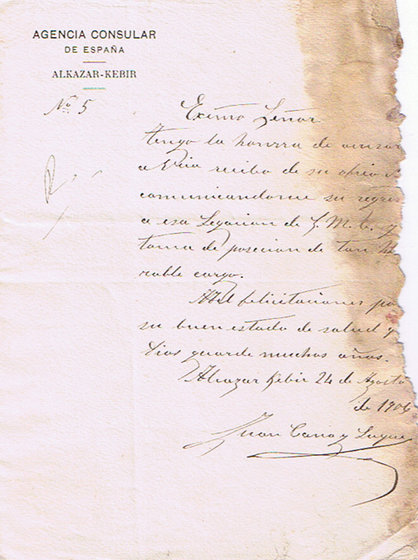 AGENCIA CONSULAR
DE ESPAÑA
ALKAZAR-KEBIR
Nº 5
Exmo Señor
tengo la honrra de
a recibo de su oficio
comunicandome su
a esa Legacion de S. M. C. y
toma de posecion de tan
rable cargo.
Mil felicitaciones
su buen estado de salud y
Dios guarde muchos años.
Alcazar Kebir 24 de Agosto
de
Juan